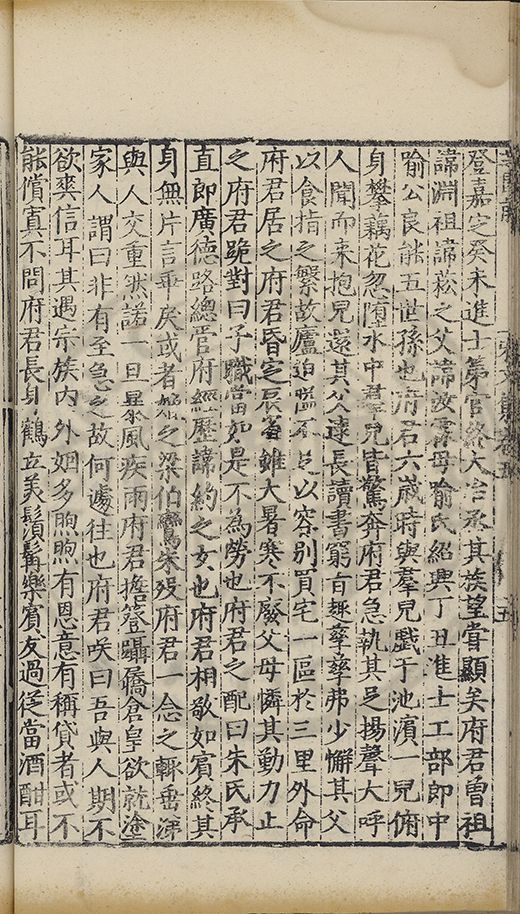 登嘉定癸未進士第官終大冶丞其族望嘗顯矣府君曾祖
諱淵祖諱菘之父諱汝霖母喻氏紹興丁丑進士工部郎中
喻公良能五世孫也府君六歲時與羣兒戲于池濱一兒俯
身攀藕花忽墮水中羣兒皆驚奔府君急執其足揚聲大呼
人聞而来抱兒還其父逮長讀書窮旨趣孳孳弗少懈其父
以食指之繁故廬迫隘不足以容别買宅一區於三里外命
府君居之府君昏定晨省雖大暑寒不廢父母憐其勤力止
之府君跪對曰子職當如是不為勞也府君之配曰朱氏承
直郎廣德路總管府經歷諱約之女也府君相敬如賓終其
身無片言乖戾或者擬之梁伯鸞朱歿府君一念之輙垂涕
與人交重然諾一旦暴風疾雨府君擔簦躡僑倉皇欲就塗
家人謂曰非有至急之故何遽往也府君咲曰吾與人期不
欲爽信耳其遇宗族内外姻多煦煦有恩意有稱貸者或不
能償寘不問府君長身鶴立美鬚髯樂賓友過從當酒酣耳
五